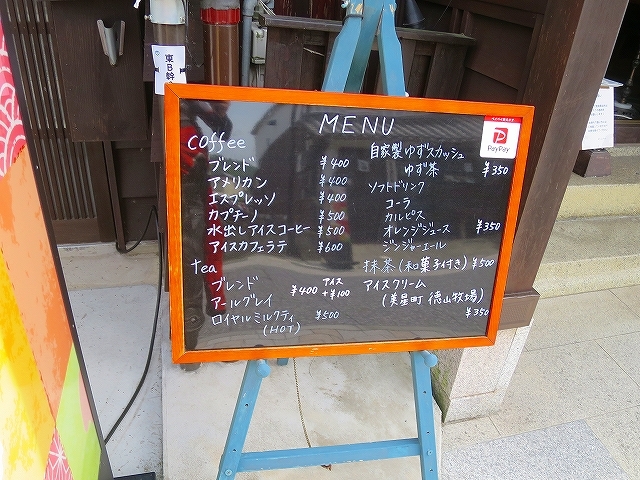 東B幹
MENU
PayPay
coffee
ブレンド ¥400
アメリカン ¥400
エスプレッソ ¥400
カプチーノ ¥500
水出しアイスコーヒー ¥500
アイスカフェラテ ¥600
tea
ブレンド
アールグレイ ¥400 アイス +¥100
ロイヤルミルクティ ¥500
(HOT)
自家製ゆずスカッシュ
ゆず茶 ¥350
ソフトドリンク
コーラ
カルピス
オレンジジュース ¥350
ジンジャーエール
抹茶(和菓子付き) ¥500
アイスクリーム
(美星町 徳山牧場)
¥350